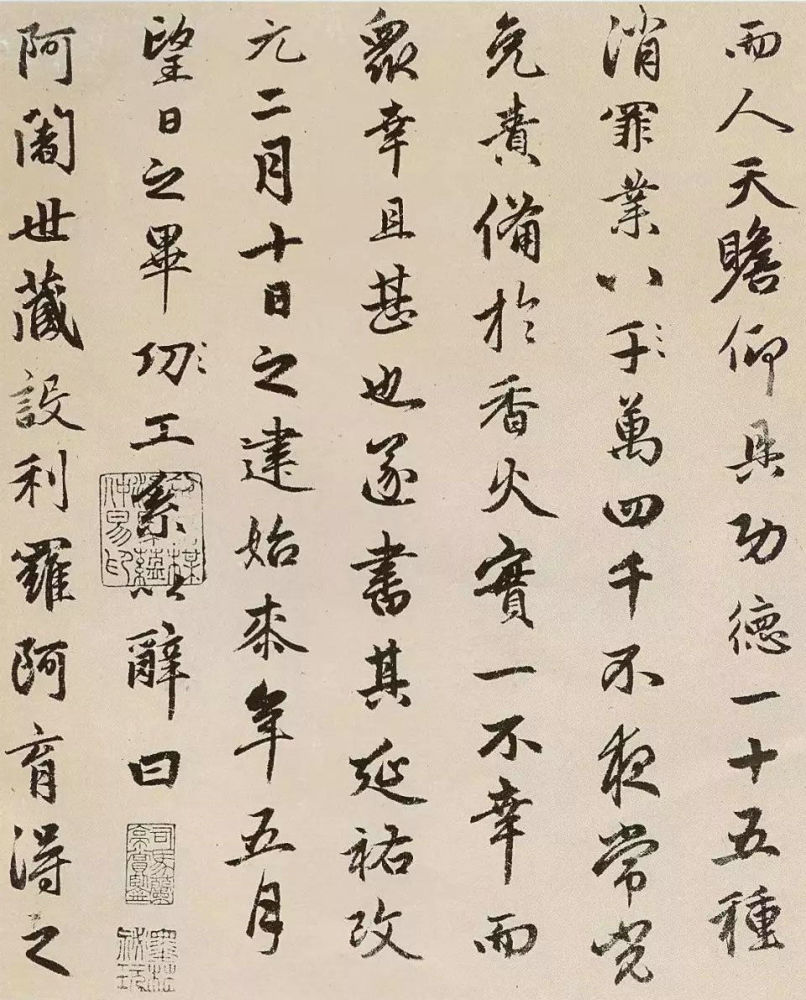 而人天瞻仰具功德一十五種
消罪業八千萬四千不夜常光
免責備於香火實一不幸而
眾幸且甚也遂書其延祐改
元二月十日之建始來年五月
望日之畢功工系以辭曰
阿闍世藏設利羅阿育得之